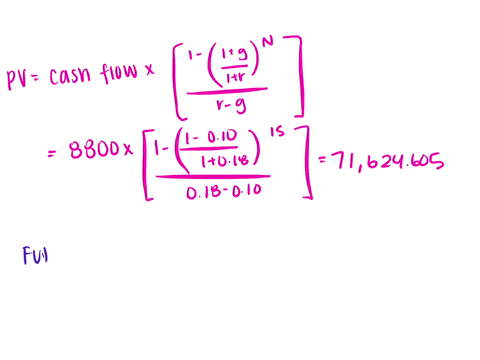 PV = cash flow × [ (1 - ((1+g)/(1+r))^N) / (r-g) ]
= 8800 × [ (1 - ((1-0.10)/(1+0.18))^15) / (0.18-0.10) ] = 71,624.605
Fu